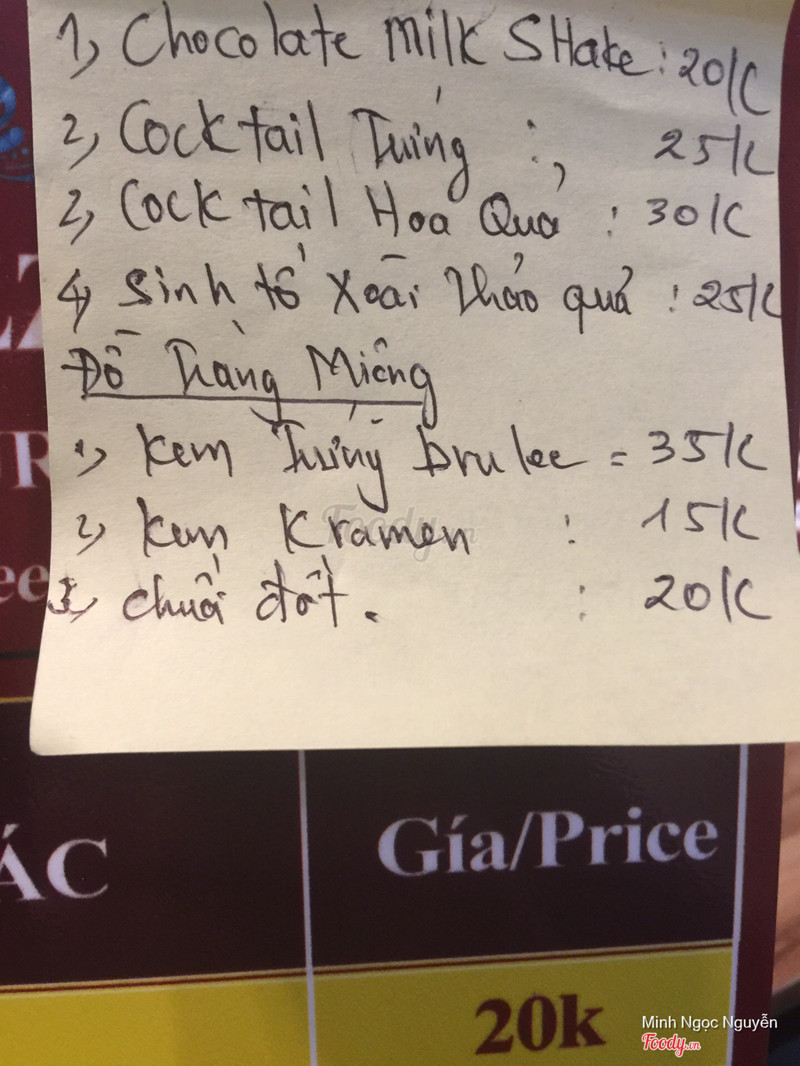 1, Chocolate Milk SHake : 20K
2, Cocktail Trứng : 25K
2, Cocktail Hoa Quả : 30K
4, Sinh tố Xoài Thảo quả : 25K
Đồ Tràng Miệng
1, Kem Trứng brulee = 35K
2, Kem Kramen : 15K
3, chuối đốt. : 20K
ÁC
Gía/Price
20k
Foody.vn
Minh Ngọc Nguyễn
Foody.vn